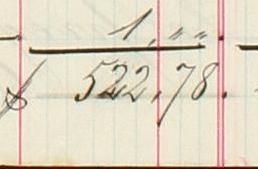 1, " "
$ 522,78.